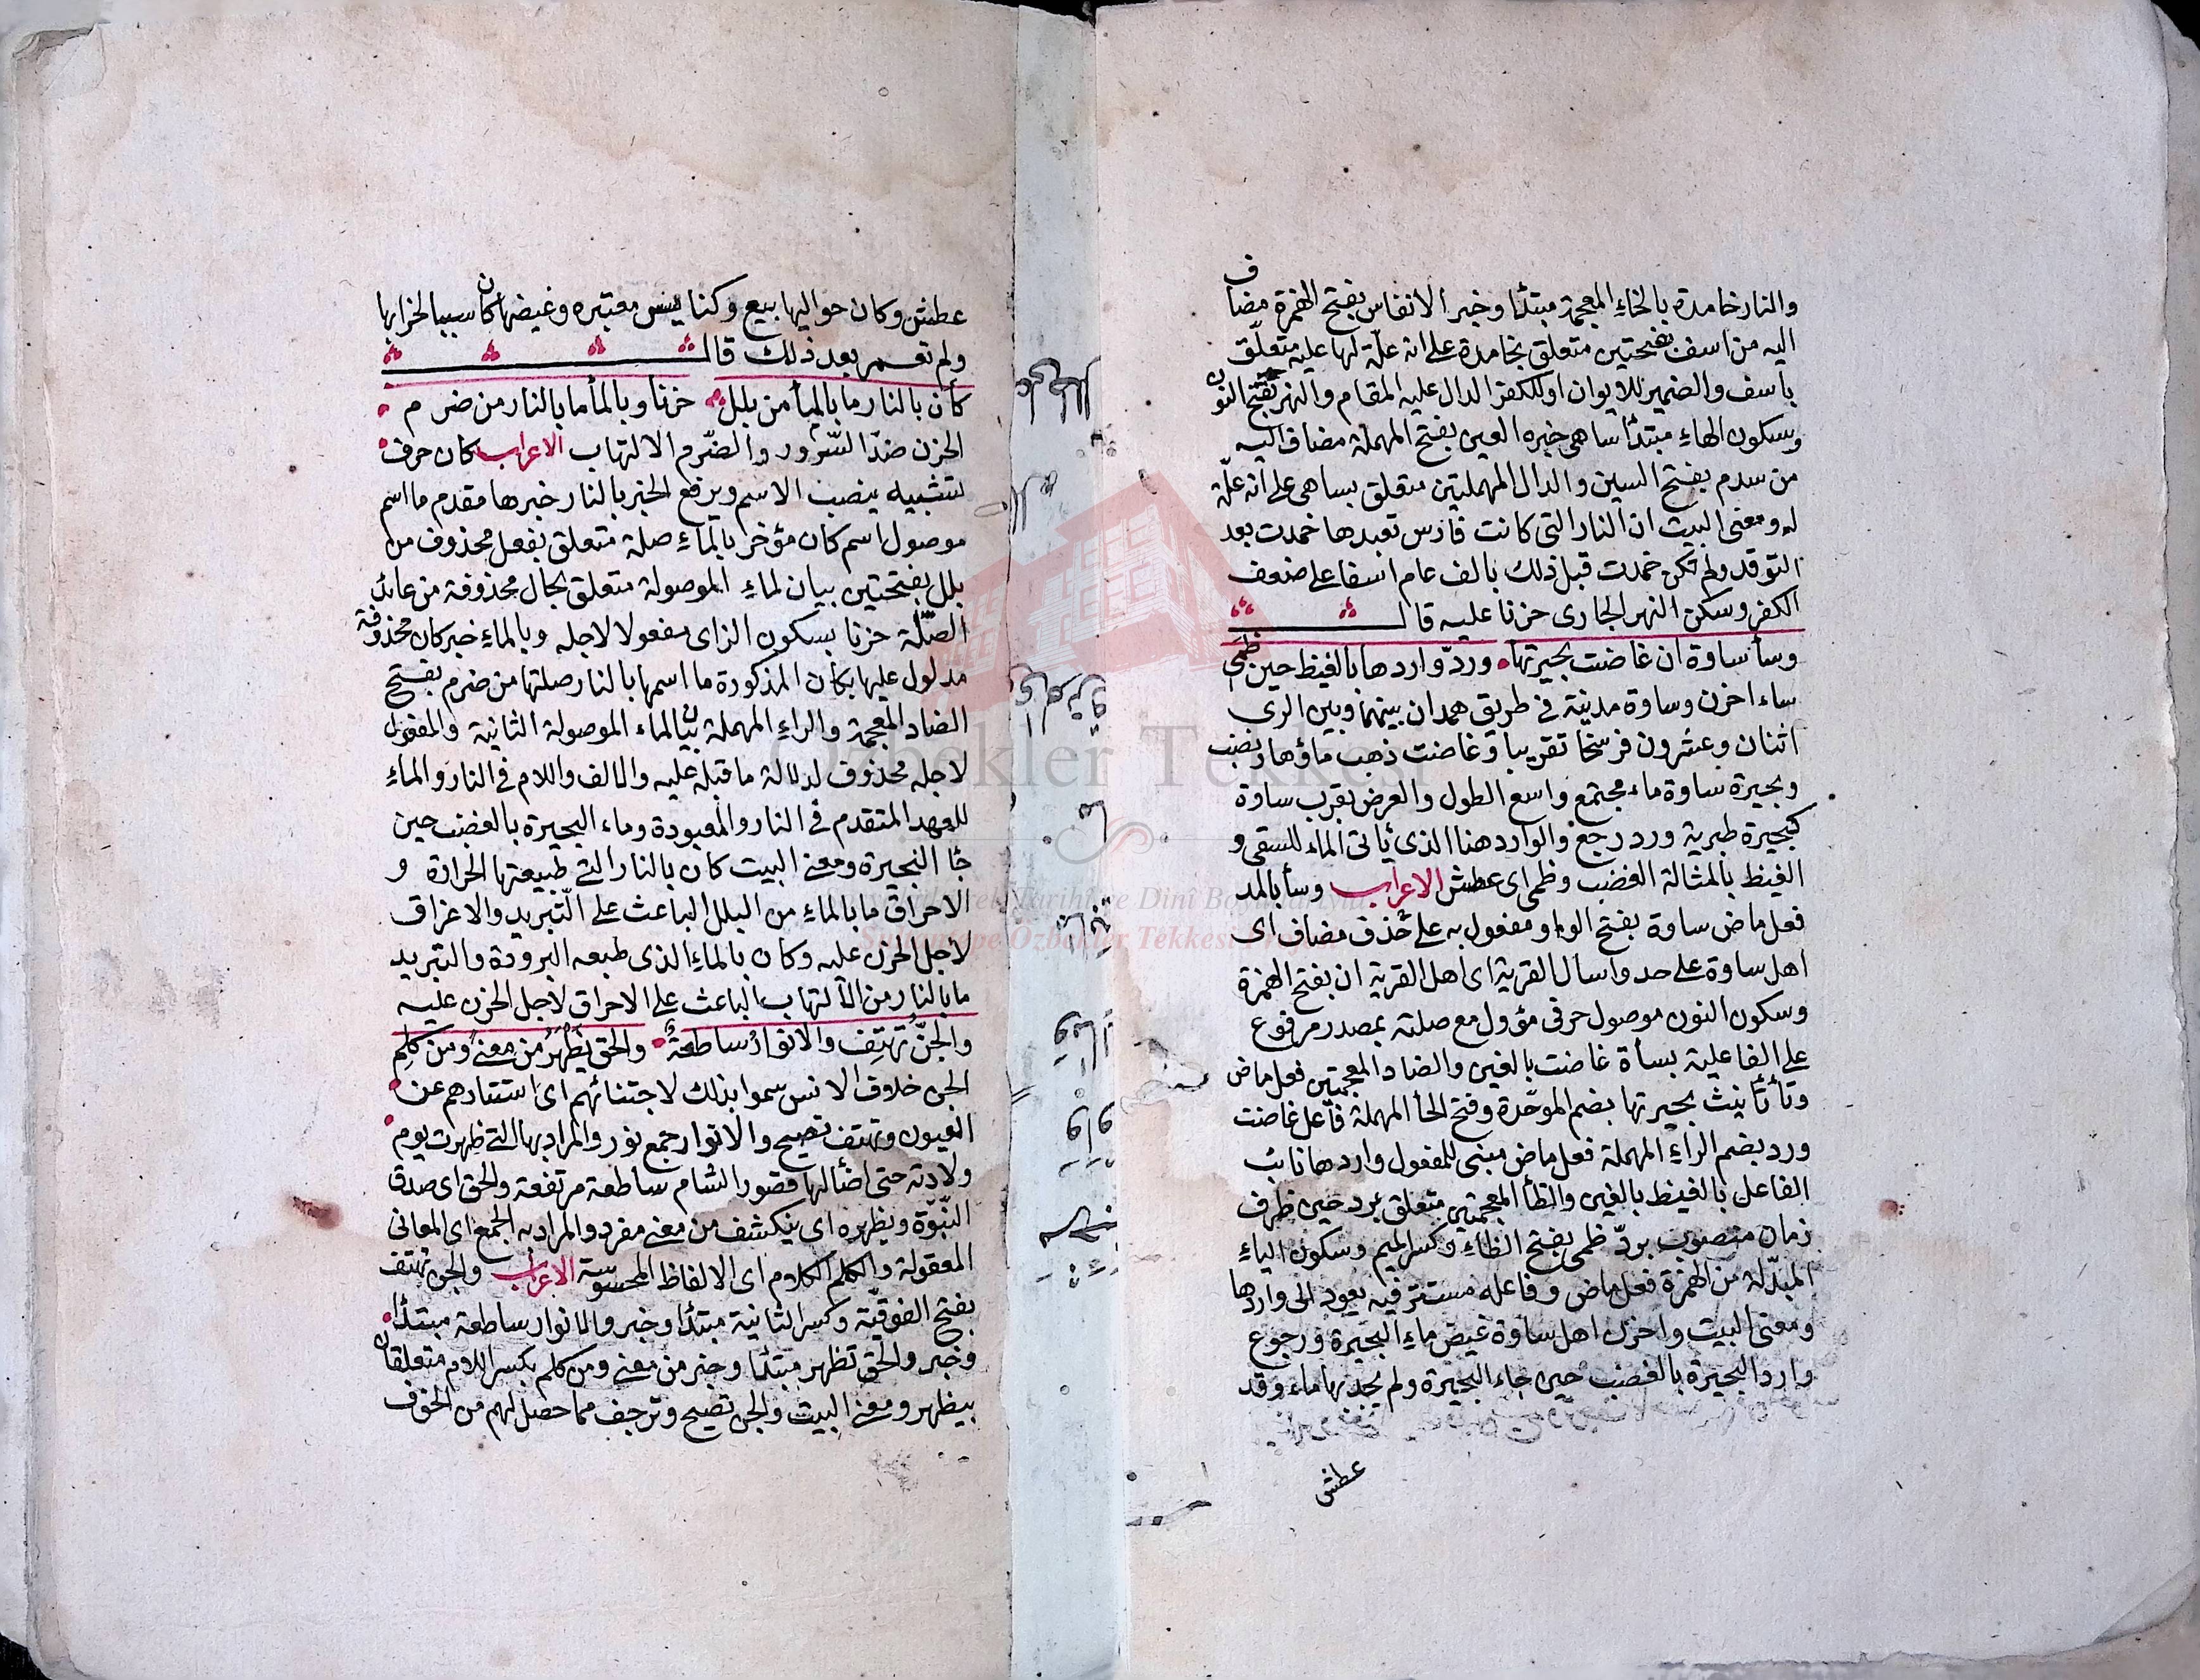 والنار خامدة بالخاء المعجمة مبتدأ وخبر الانفاس بفتح الهمزة مضاف
اليه من اسف بفتحتين متعلق بخامدة على انه علّة لها عليه متعلّق
باسف والضمير للايوان او للكفر الدال عليه المقام والنهر بفتح النون
وسكون الهاء مبتدأ ساهى خبره العين بفتح المهملة مضاف اليه
من سدم بفتح السين والدال المهملتين متعلق بساهى على انه علّة
له ومعنى البيت ان النار التى كانت فارس تعبدها خمدت بعد
التوقد ولم تكن خمدت قبل ذلك بالف عام اسفا على ضعف
الكفر وسكن النهر الجارى حزنا عليه قال
وسأ ساوة ان غاضت بحيرتها وردّ واردها بالغيظ حين ظمى
ساء احزن وساوة مدينة فى طريق همدان بينهما وبين الرى
اثنان وعشرون فرسخا تقريبا وغاضت ذهب ماؤها
وبحيرة ساوة ماء مجتمع واسع الطول والعرض بقرب ساوة
كبحيرة طبرية ورد رجع والوارد هنا الذى يأتى الماء للسقى و
الغيظ بالمثالة الغضب وظمى اى عطش الاعراب وسأ بالمد
فعل ماض ساوة بفتح الواو مفعول به على حذف مضاف اى
اهل ساوة على حد واسال القرية اى اهل القرية ان بفتح الهمزة
وسكون النون موصول حرفى مؤول مع صلته بمصدر مرفوع
على الفاعلية بسأة غاضت بالغين والضاد المعجمتين فعل ماض
وتأ تأنيث بحيرتها بضم الموحّدة وفتح الحأ المهملة فاعل غاضت
ورد بضم الراء المهملة فعل ماض مبنى للمفعول واردها نائب
الفاعل بالغيظ بالغين والظأ المعجمتين متعلق برد حين ظرف
زمان منصوب بردّ ظمى بفتح الظاء وكسر الميم وسكون الياء
المبدّلة من الهمزة فعل ماض وفاعله مستتر فيه يعود الى واردها
ومعنى البيت واحزن اهل ساوة غيض ماء البحيرة ورجوع
وارد البحيرة بالغضب حين جاء البحيرة ولم يجد بها ماء وقد
عطش
عطش وكان حواليها بيع وكنايس معتبره وغيضها كان سببا لخرابها
ولم تعمر بعد ذلك قال
كأن بالنار ما بالمأ من بلل حزنا وبالمأ ما بالنار من ضرم
الحزن ضدّ السّرور والضّرم الالتهاب الاعراب كان حرف
تشبيه ينصب الاسم ويرفع الخبر بالنار خبرها مقدم ما اسم
موصول اسم كان مؤخر بالماء صلة متعلق بفعل محذوف من
بلل بفتحتين بيان لماء الموصولة متعلق بحال محذوفة من عائد
الصّلة حزنا بسكون الزاى مفعولا لاجله وبالماء خبر كان محذوفة
مدلول عليها بكأن المذكورة ما اسمها بالنار صلتها من ضرم بفتح
الضاد المعجمة والراء المهملة بيان لماء الموصولة الثانية والمفعول
لاجله محذوف لدلالة ما قبله عليه والالف واللام فى النار والماء
للعهد المتقدم فى النار والمعبودة وماء البحيرة بالغضب حين
جأ البحيرة ومعنى البيت كان بالنار التى طبيعتها الحرارة و
الاحراق ما بالماء من البلل الباعث على التّبريد والاغراق
لاجل الحزن عليه وكان بالماء الذى طبعه البرودة والتبريد
ما بالنار من الالتهاب الباعث على الاحراق لاجل الحزن عليه
والجنّ تهتف والانوار ساطعة والحق يظهر من معنى ومن كلم
الجن خلاف الانس سموا بذلك لاجتنائهم اى استتارهم عن
العيون وتهتف تصيح والانوار جمع نور والمراد بها التى ظهرت يوم
ولادته حتى اضأ لها قصور الشام ساطعة مرتفعة والحق اى صدق
النّبوّة ويظهره اى ينكشف من معنى مفرد والمراد به الجمع اى المعانى
المعقولة والكلم الكلام اى الالفاظ المحسوسة الاعراب والجن تهتف
بفتح الفوقيّة وكسر الثانية مبتدأ وخبر والانوار ساطعة مبتدأ
وخبر والحق تظهر مبتدأ وخبر من معنى ومن كلم بكسر اللام متعلقان
بيظهر ومعنى البيت والجن تصيح وترجف مما حصل لهم من الخوف
Özbekler Tekkesi